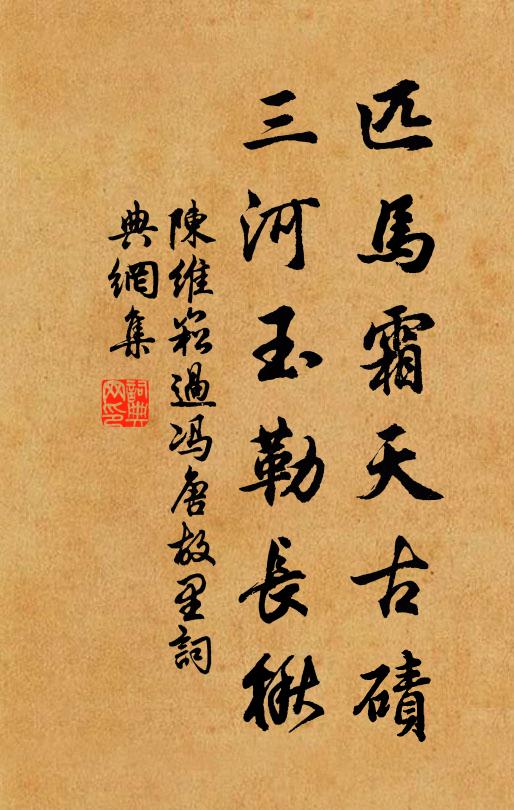 匹馬霜天古磧
三河玉勒長楸
陳維崧過冯唐故里詞
典網集
詞典網印